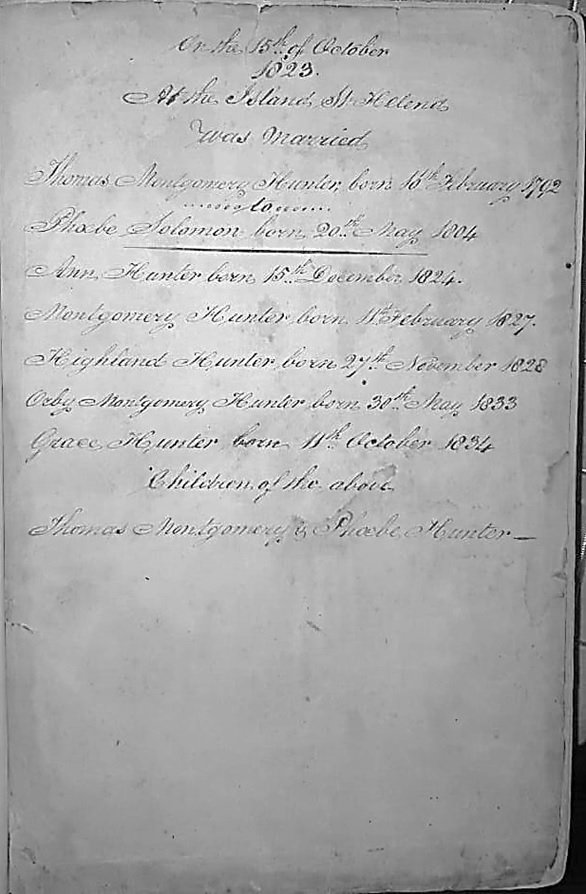 On the 15th of October
1823.
At the Island St Helena
Was Married
Thomas Montgomery Hunter, born 16th February 1792
to
Phoebe Solomon born 20th May 1804
Ann Hunter born 15th December 1824.
Montgomery Hunter born 11th February 1827.
Highland Hunter born 27th November 1828
Orby Montgomery Hunter born 30th May 1833
Grace Hunter born 11th October 1834
Children of the above
Thomas Montgomery & Phoebe Hunter —